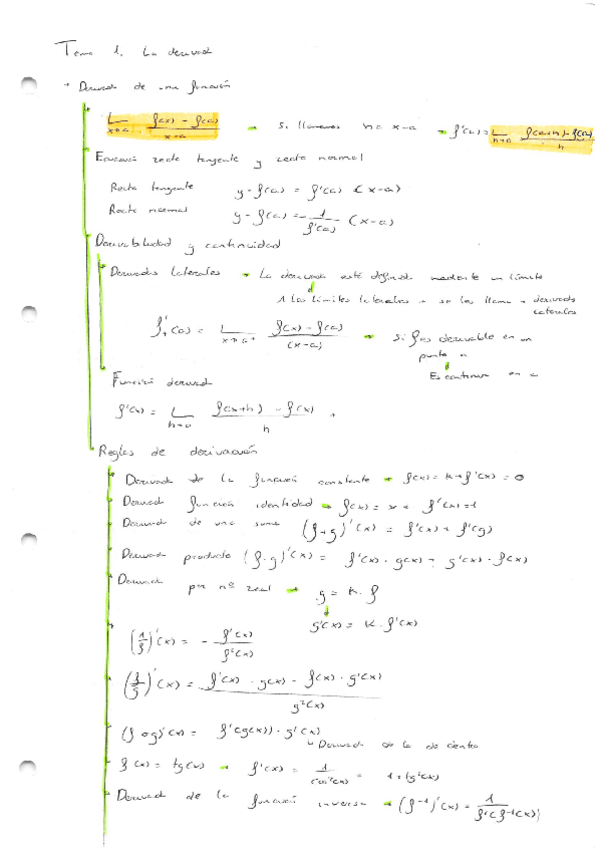 Tema 1. La derivad
Derivada de una función
Lim x→a f(x) - f(a) / x-a → Si llamamos h = x-a → f'(a) = Lim h→0 f(a+h) - f(a) / h
Ecuación recta tangente y recta normal
Recta tangente y - f(a) = f'(a) (x-a)
Recta normal y - f(a) = - 1 / f'(a) (x-a)
Derivabilidad y continuidad
Derivadas laterales → La derivada está definida mediante un límite
los límites laterales → se les llama → derivada laterales
f'+(a) = Lim x→a+ f(x) - f(a) / (x-a) → Si f es derivable en un
punto a
Es continua en a
Función derivad
f'(x) = Lim h→0 f(x+h) - f(x) / h
Reglas de derivación
Derivad de la función constante → f(x) = k → f'(x) = 0
Derivad función identidad → f(x) = x → f'(x) = 1
Derivad de una suma (f+g)'(x) = f'(x) + f'(g)
Derivad producto (f·g)'(x) = f'(x) · g(x) + g'(x) · f(x)
Derivad por nº real → g = k · f
g'(x) = k · f'(x)
(1/f)'(x) = - f'(x) / f²(x)
(f/g)'(x) = f'(x) · g(x) - f(x) · g'(x) / g²(x)
(f o g)'(x) = f'(g(x)) · g'(x)
Derivad de la de dentro
f(x) = tg(x) → f'(x) = 1 / cos²(x) = 1 + tg²(x)
Derivad de la función inversa → (f⁻¹)'(x) = 1 / f'(f⁻¹(x))